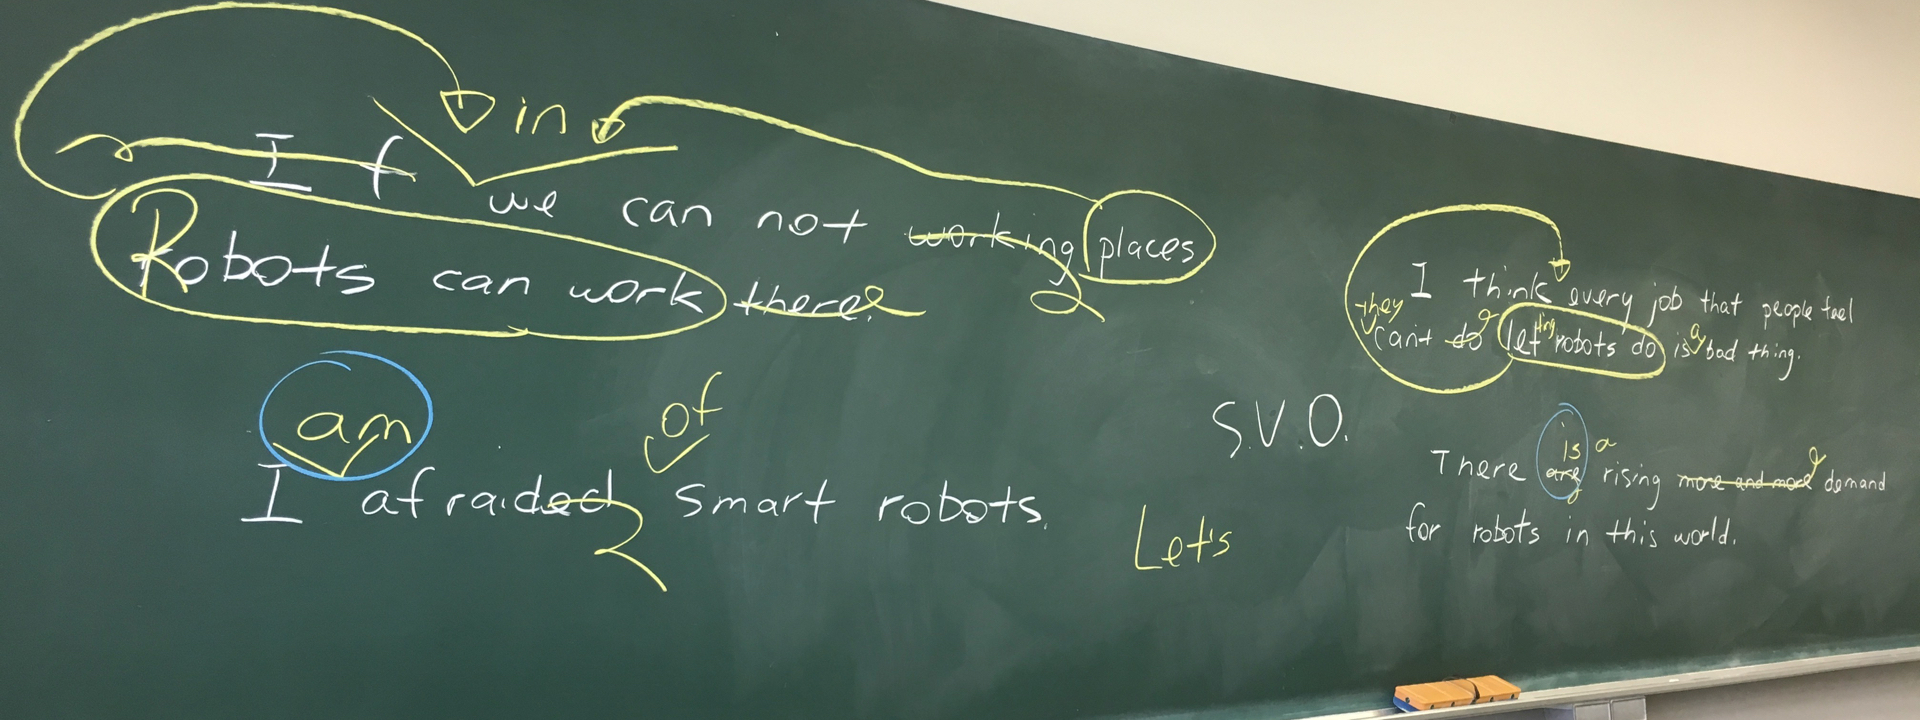 in
If we can not working places
Robots can work there.
am
of
I afraided smart robots.
S.V.O.
Let's
I think every job that people feel
they
ting
a
can't do let robots do is bad thing.
is a
There are rising more and more demand
for robots in this world.